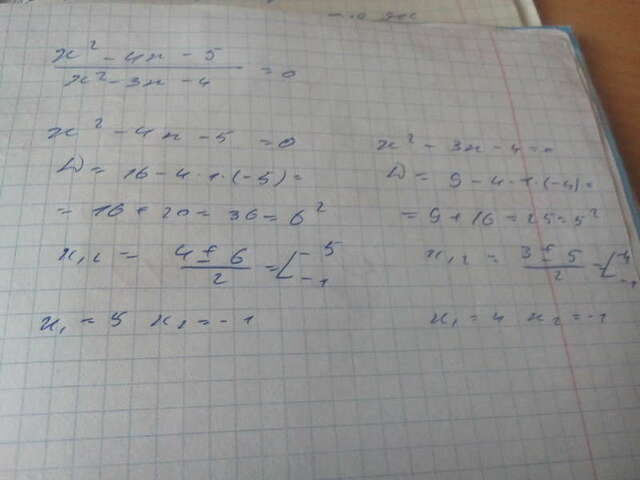 x² - 4x - 5
x² - 3x - 4 = 0
x² - 4x - 5 = 0
D = 16 - 4 · 1 · (-5) =
= 16 + 20 = 36 = 6²
x₁,₂ = 4 ± 6 / 2 = [ - 5
- -1
x₁ = 5 x₂ = -1
x² - 3x - 4 = 0
D = 9 - 4 · 1 · (-4) =
= 9 + 16 = 25 = 5²
x₁,₂ = 3 ± 5 / 2 = [ 4
-1
x₁ = 4 x₂ = -1